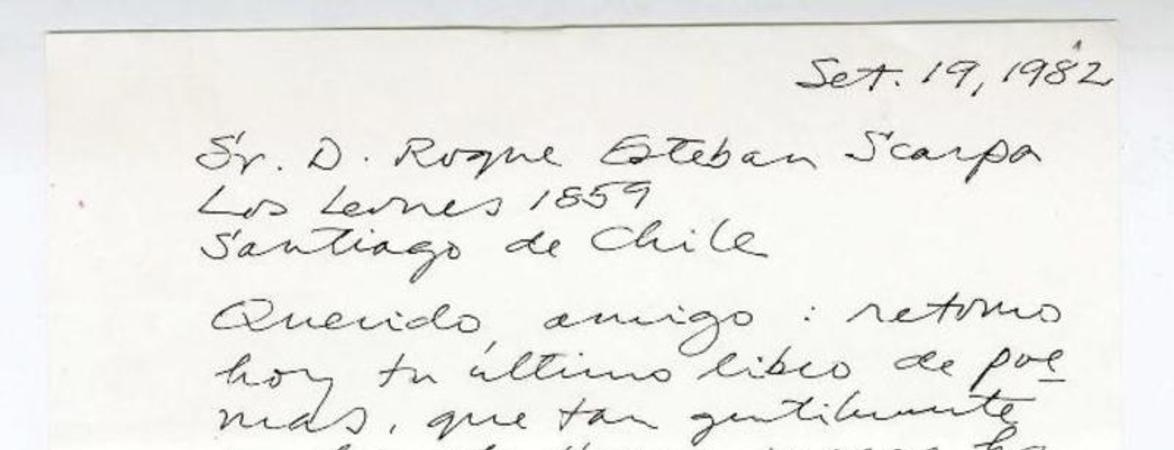 Set. 19, 1982
Sr. D. Roque Esteban Scarpa
Los Leones 1859
Santiago de Chile
Querido amigo : retomo
hoy tu último libro de poe-
mas, que tan gentilmente